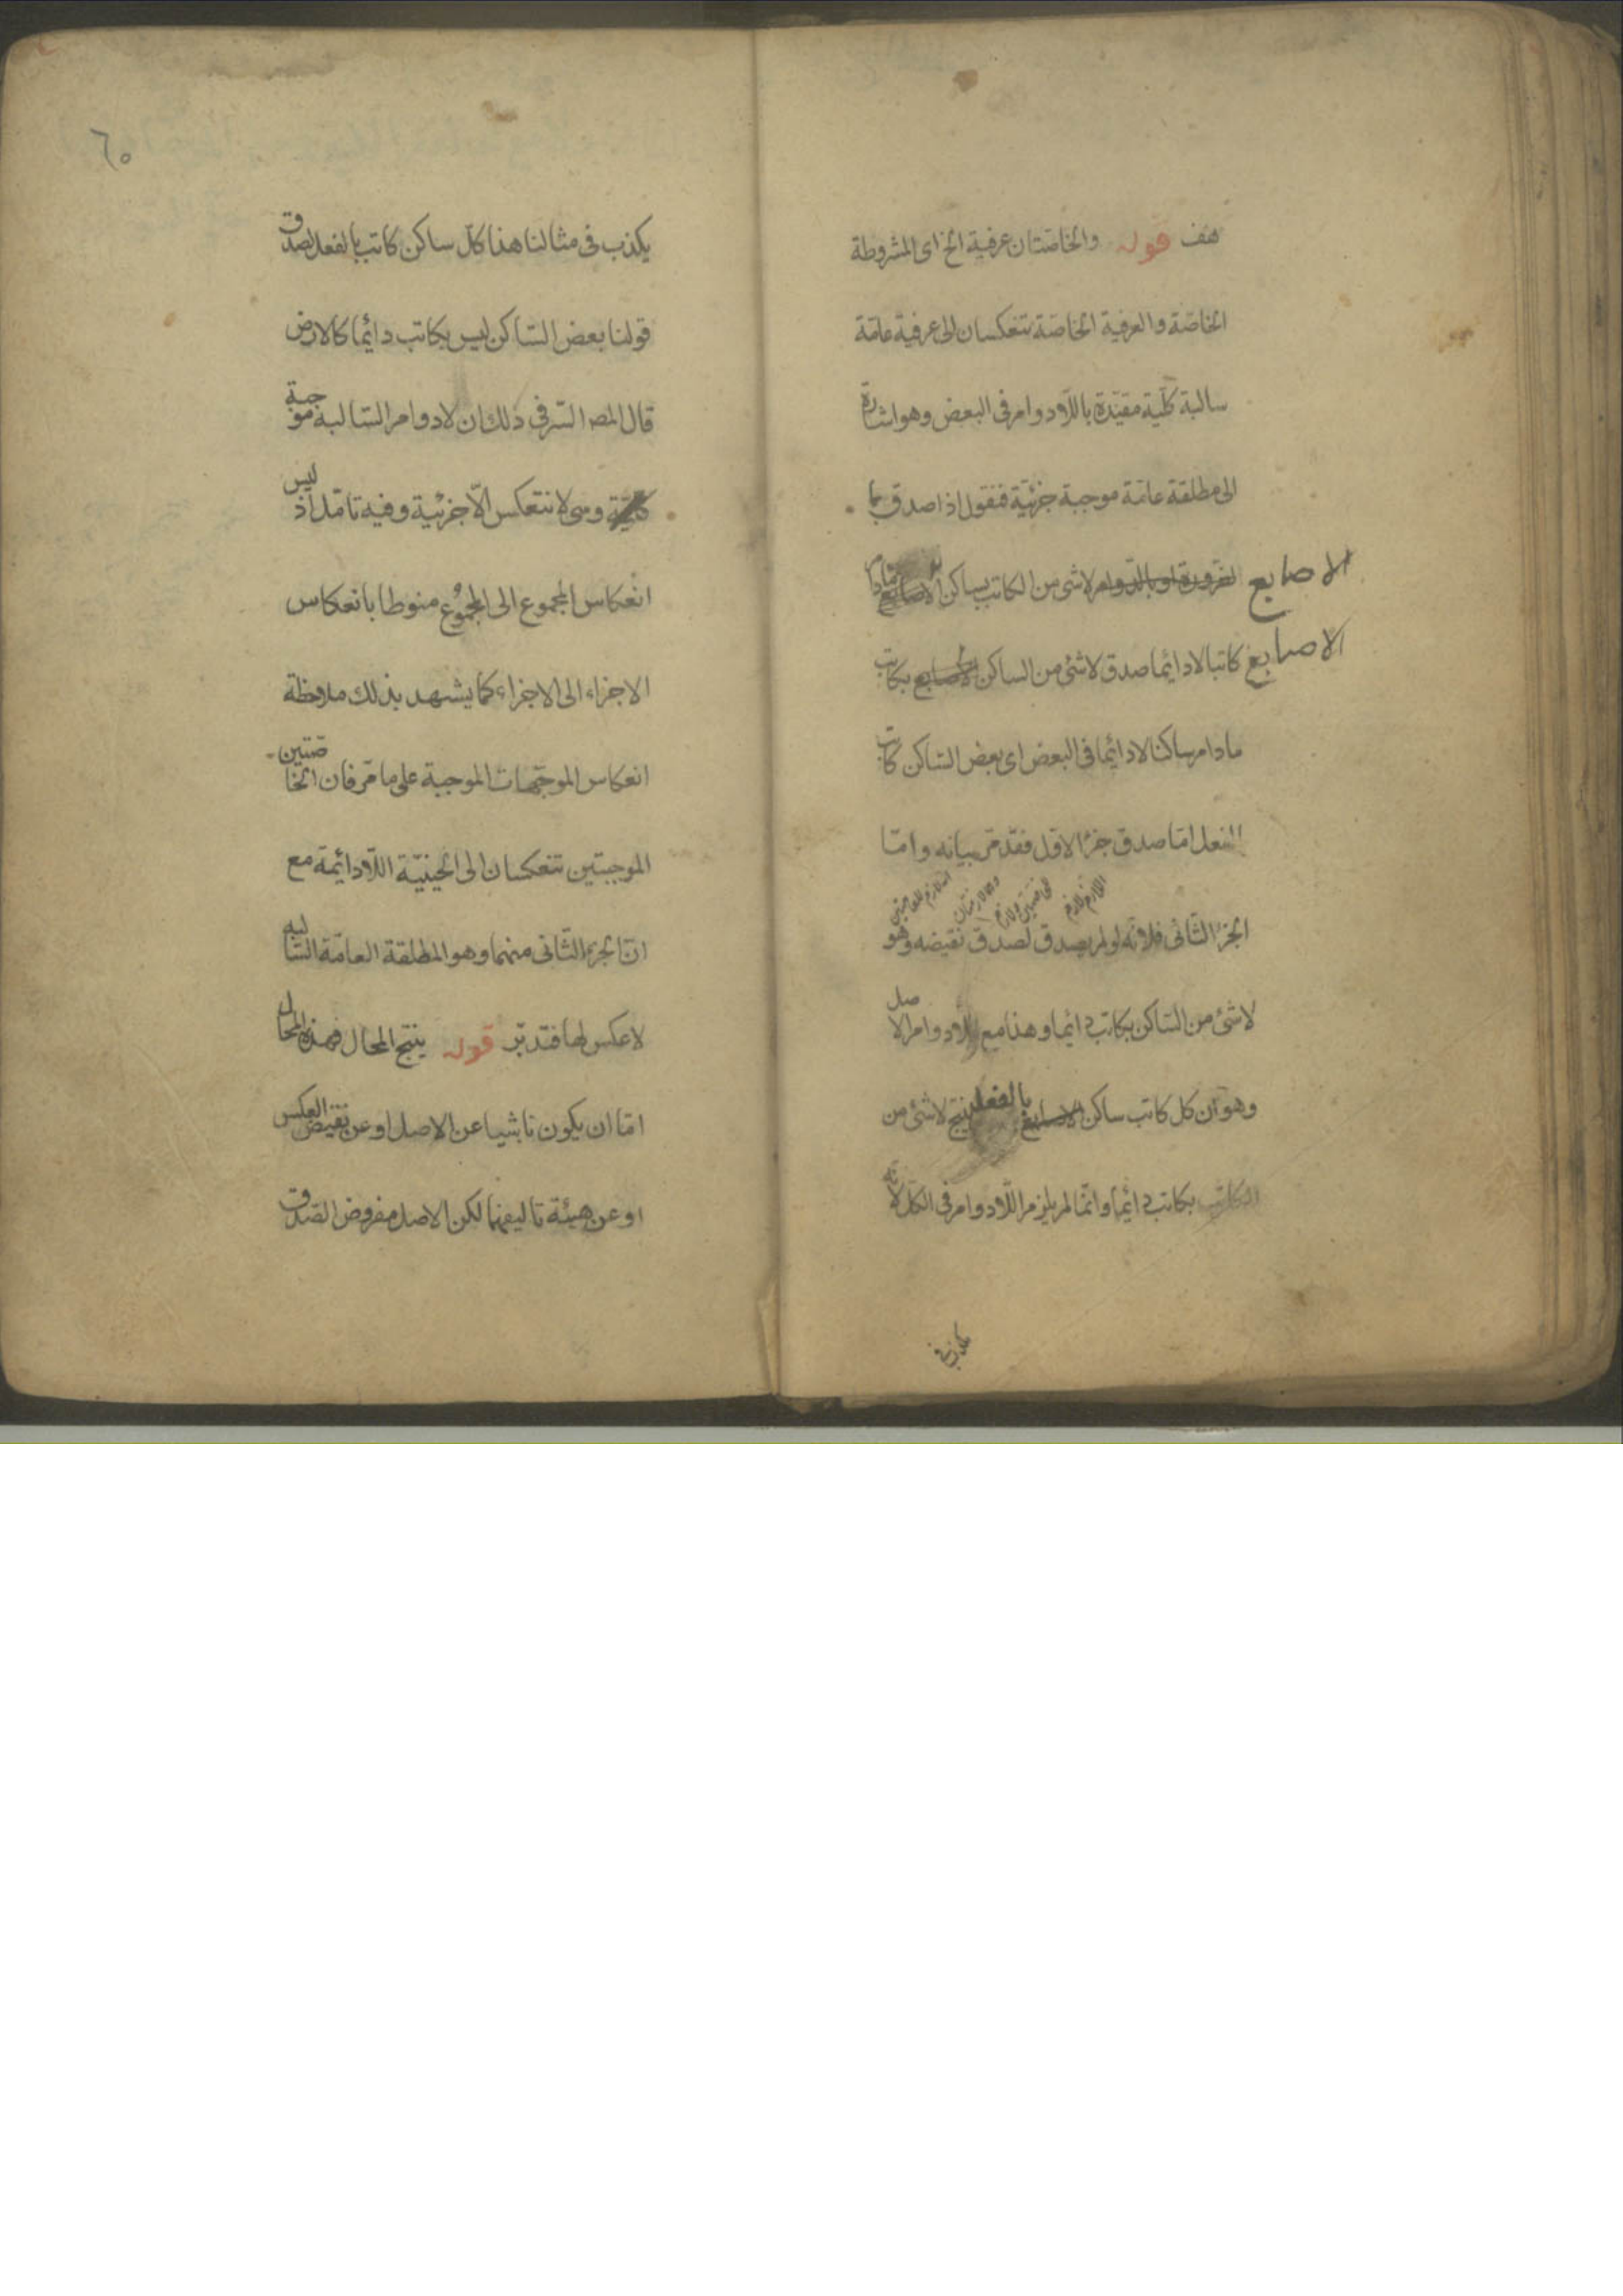 هف قوله والخاصتان عرفية الخ اى المشروطة
الخاصّة والعرفية الخاصّة تنعكسان الى عرفية عامّة
سالبة كلّية مقيّدة باللّادوام فى البعض وهو اشارة
الى مطلقة عامّة موجبة جزئيّة فنقول اذا صدق بالـ
لضرورة او بالدوام لا شئ من الكاتب بساكن الاصابع مادام
الاصابع
كاتبا لا دائما صدق لا شئ من الساكن الاصابع بكاتب
الاصابع
مادام ساكنا لا دائما فى البعض اى بعض الساكن كاتب
بالفعل امّا صدق جزء الاوّل فقد مرّ بيانه وامّا
الجزء الثّانى فلانّه لو لم يصدق لصدق نقيضه وهو
لا شئ من السّاكن بكاتب دائما وهذا مع اللّادوام الاصل
وهو ان كل كاتب ساكن الاصابع بالفعل ينتج لا شئ من
الكاتب بكاتب دائما وانّما لم يلزم اللّادوام فى الكلّ لانّه
يكذب فى
٦٥
يكذب فى مثالنا هذا كلّ ساكن كاتب بالفعل لصدق
قولنا بعض السّاكن ليس بكاتب دائما كالارض
قال المصـ السّر فى ذلك ان لادوام السّالبة موجبة
كلّيّة وهى لا تنعكس الّا جزئية وفيه تامّل اذ ليس
انعكاس المجموع الى المجموع منوطا بانعكاس
الاجزاء الى الاجزاء كما يشهد بذلك ملاحظة
انعكاس الموجّهات الموجبة على ما مرّ فان الخاصّتين
الموجبتين تنعكسان الى الحينيّة اللّادائمة مع
انّ الجزء الثّانى منهما وهو المطلقة العامّة السّالبه
لا عكس لها فتدبّر قوله ينتج المحال فهذا المحال
امّا ان يكون ناشيا عن الاصل او عن نقيض العكس
او عن هيئة تاليفهما لكن الاصل مفروض الصّدق